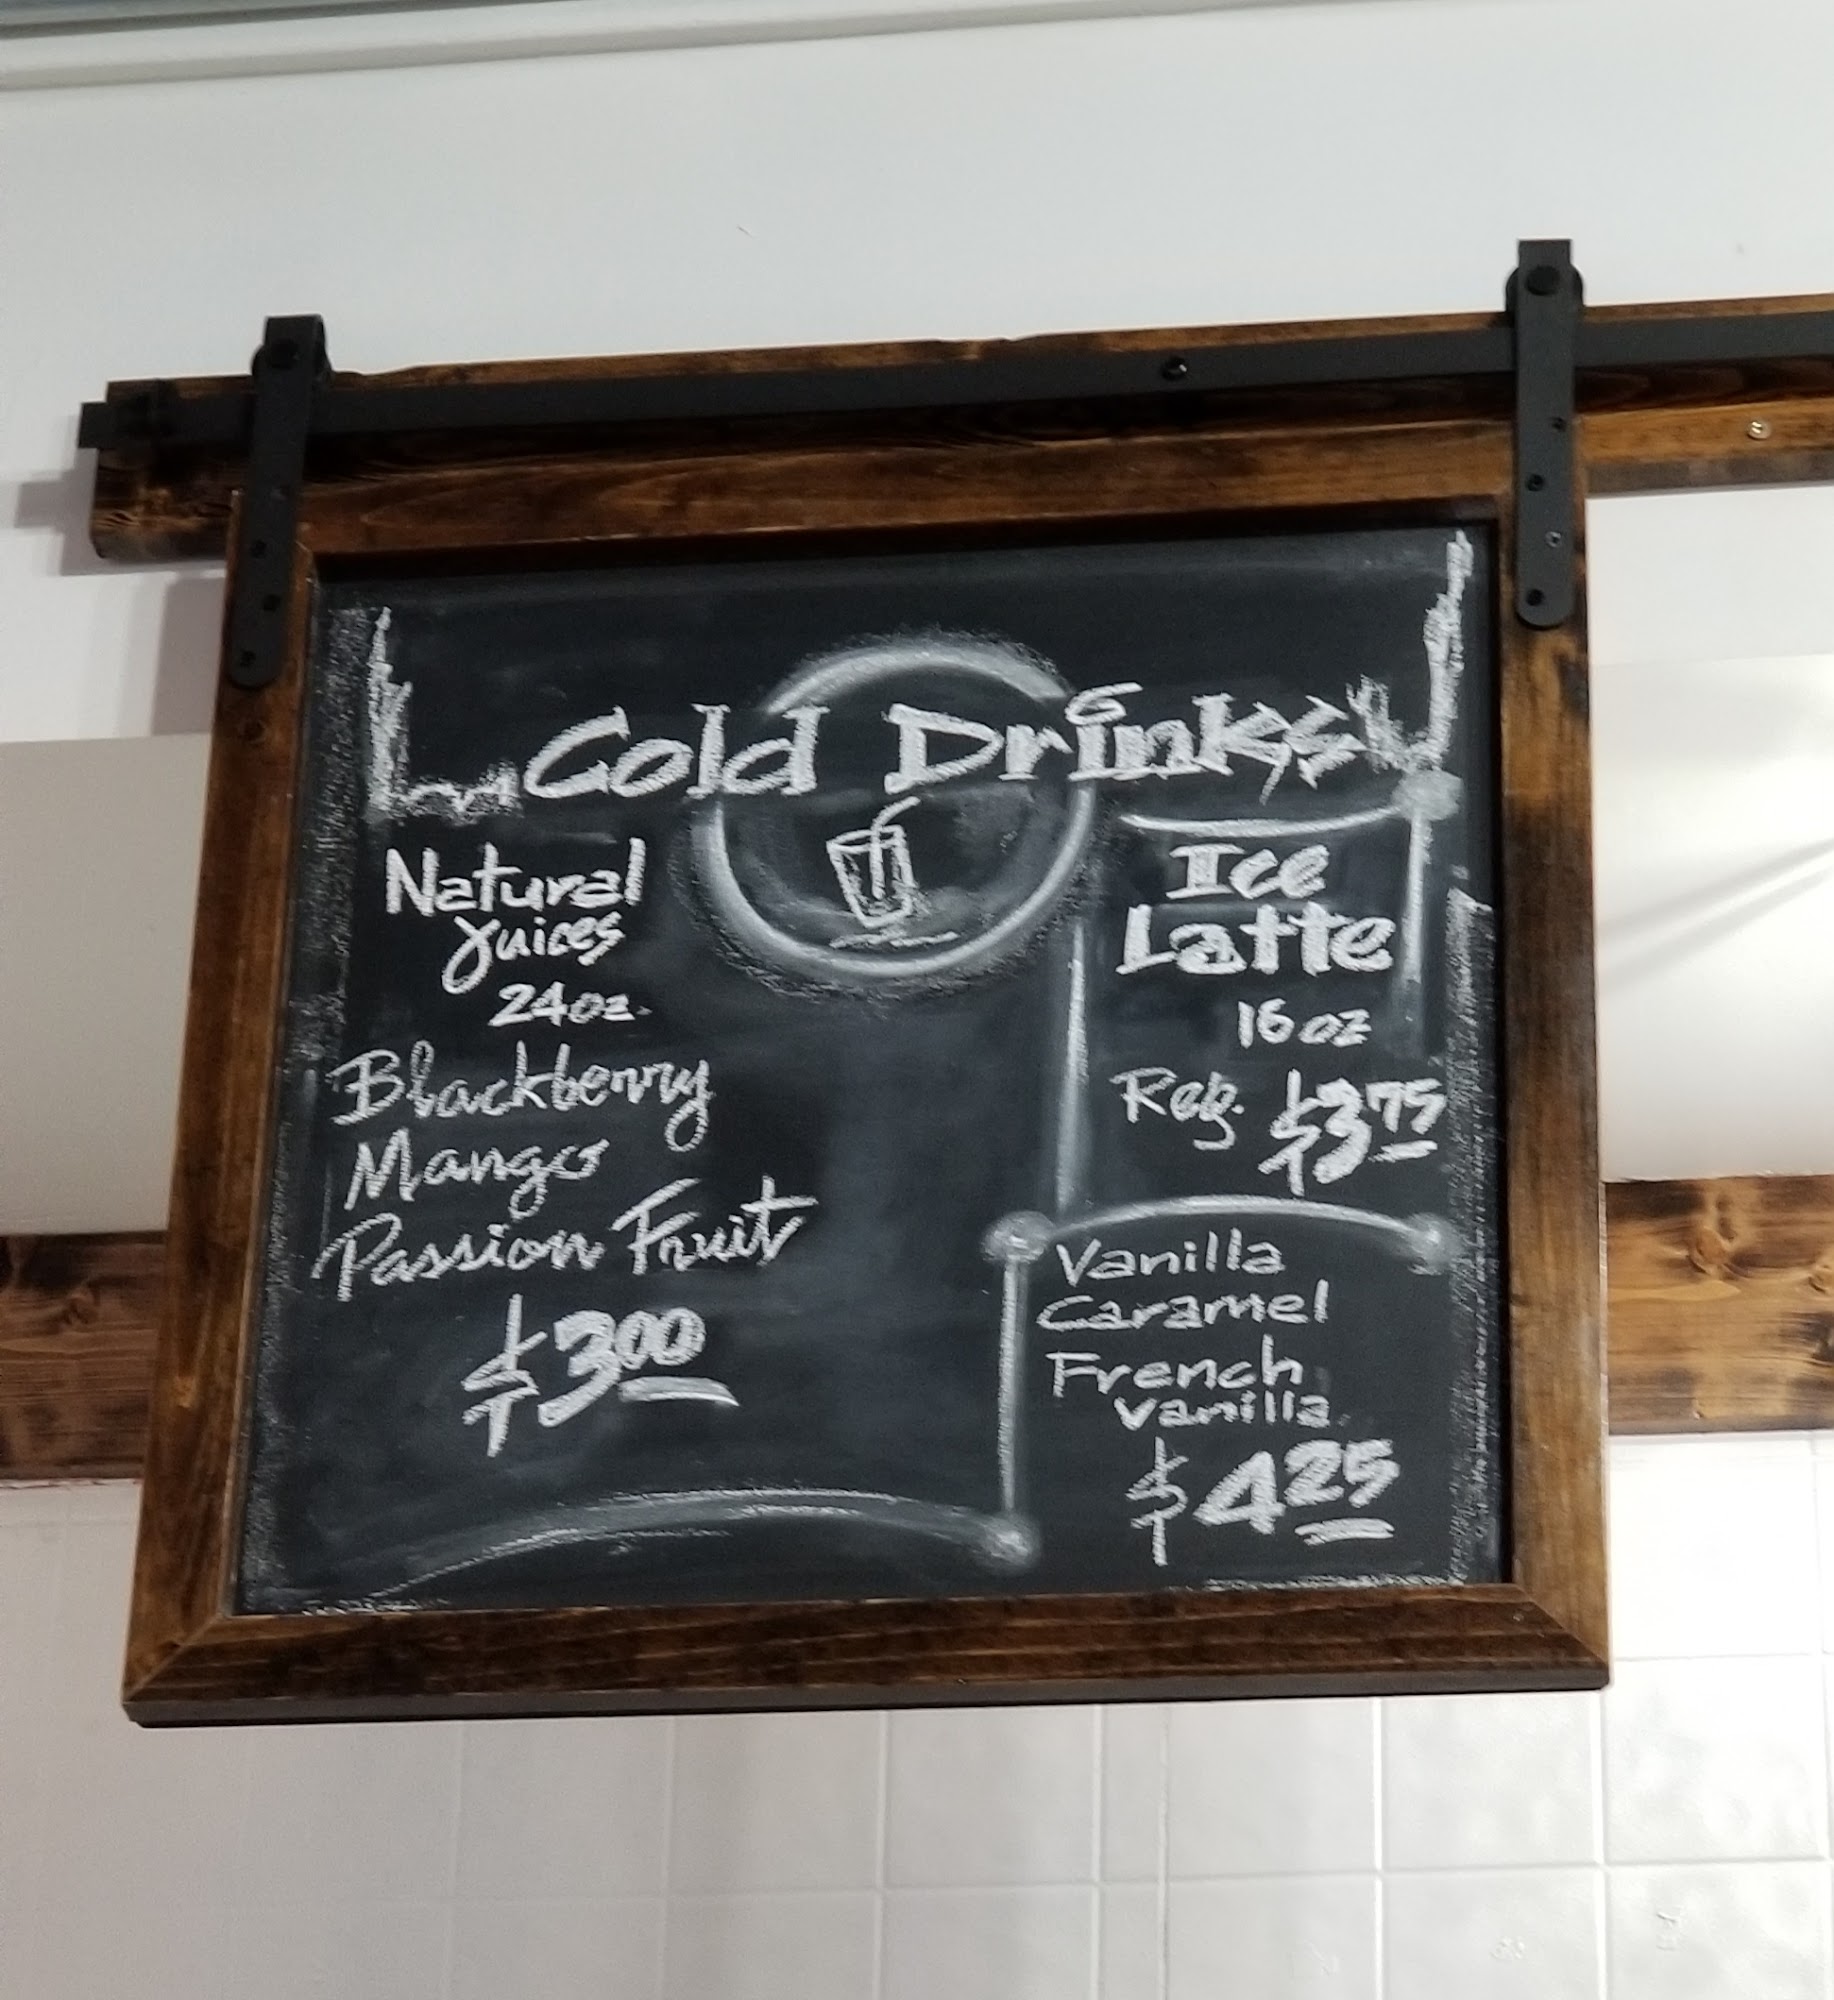 Cold Drinks
Natural
Juices
24oz.
Blackberry
Mango
Passion Fruit
$3.00
Ice
Latte
16 oz
Reg. $3.75
Vanilla
Caramel
French
Vanilla
$4.25